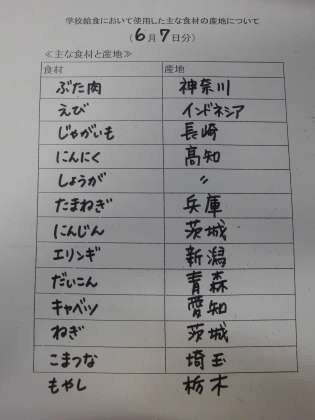 学校給食において使用した主な食材の産地について
(6月7日分)
≪主な食材と産地≫
食材 産地
ぶた肉 神奈川
えび インドネシア
じゃがいも 長崎
にんにく 高知
しょうが 〃
たまねぎ 兵庫
にんじん 茨城
エリンギ 新潟
だいこん 青森
キャベツ 愛知
ねぎ 茨城
こまつな 埼玉
もやし 栃木